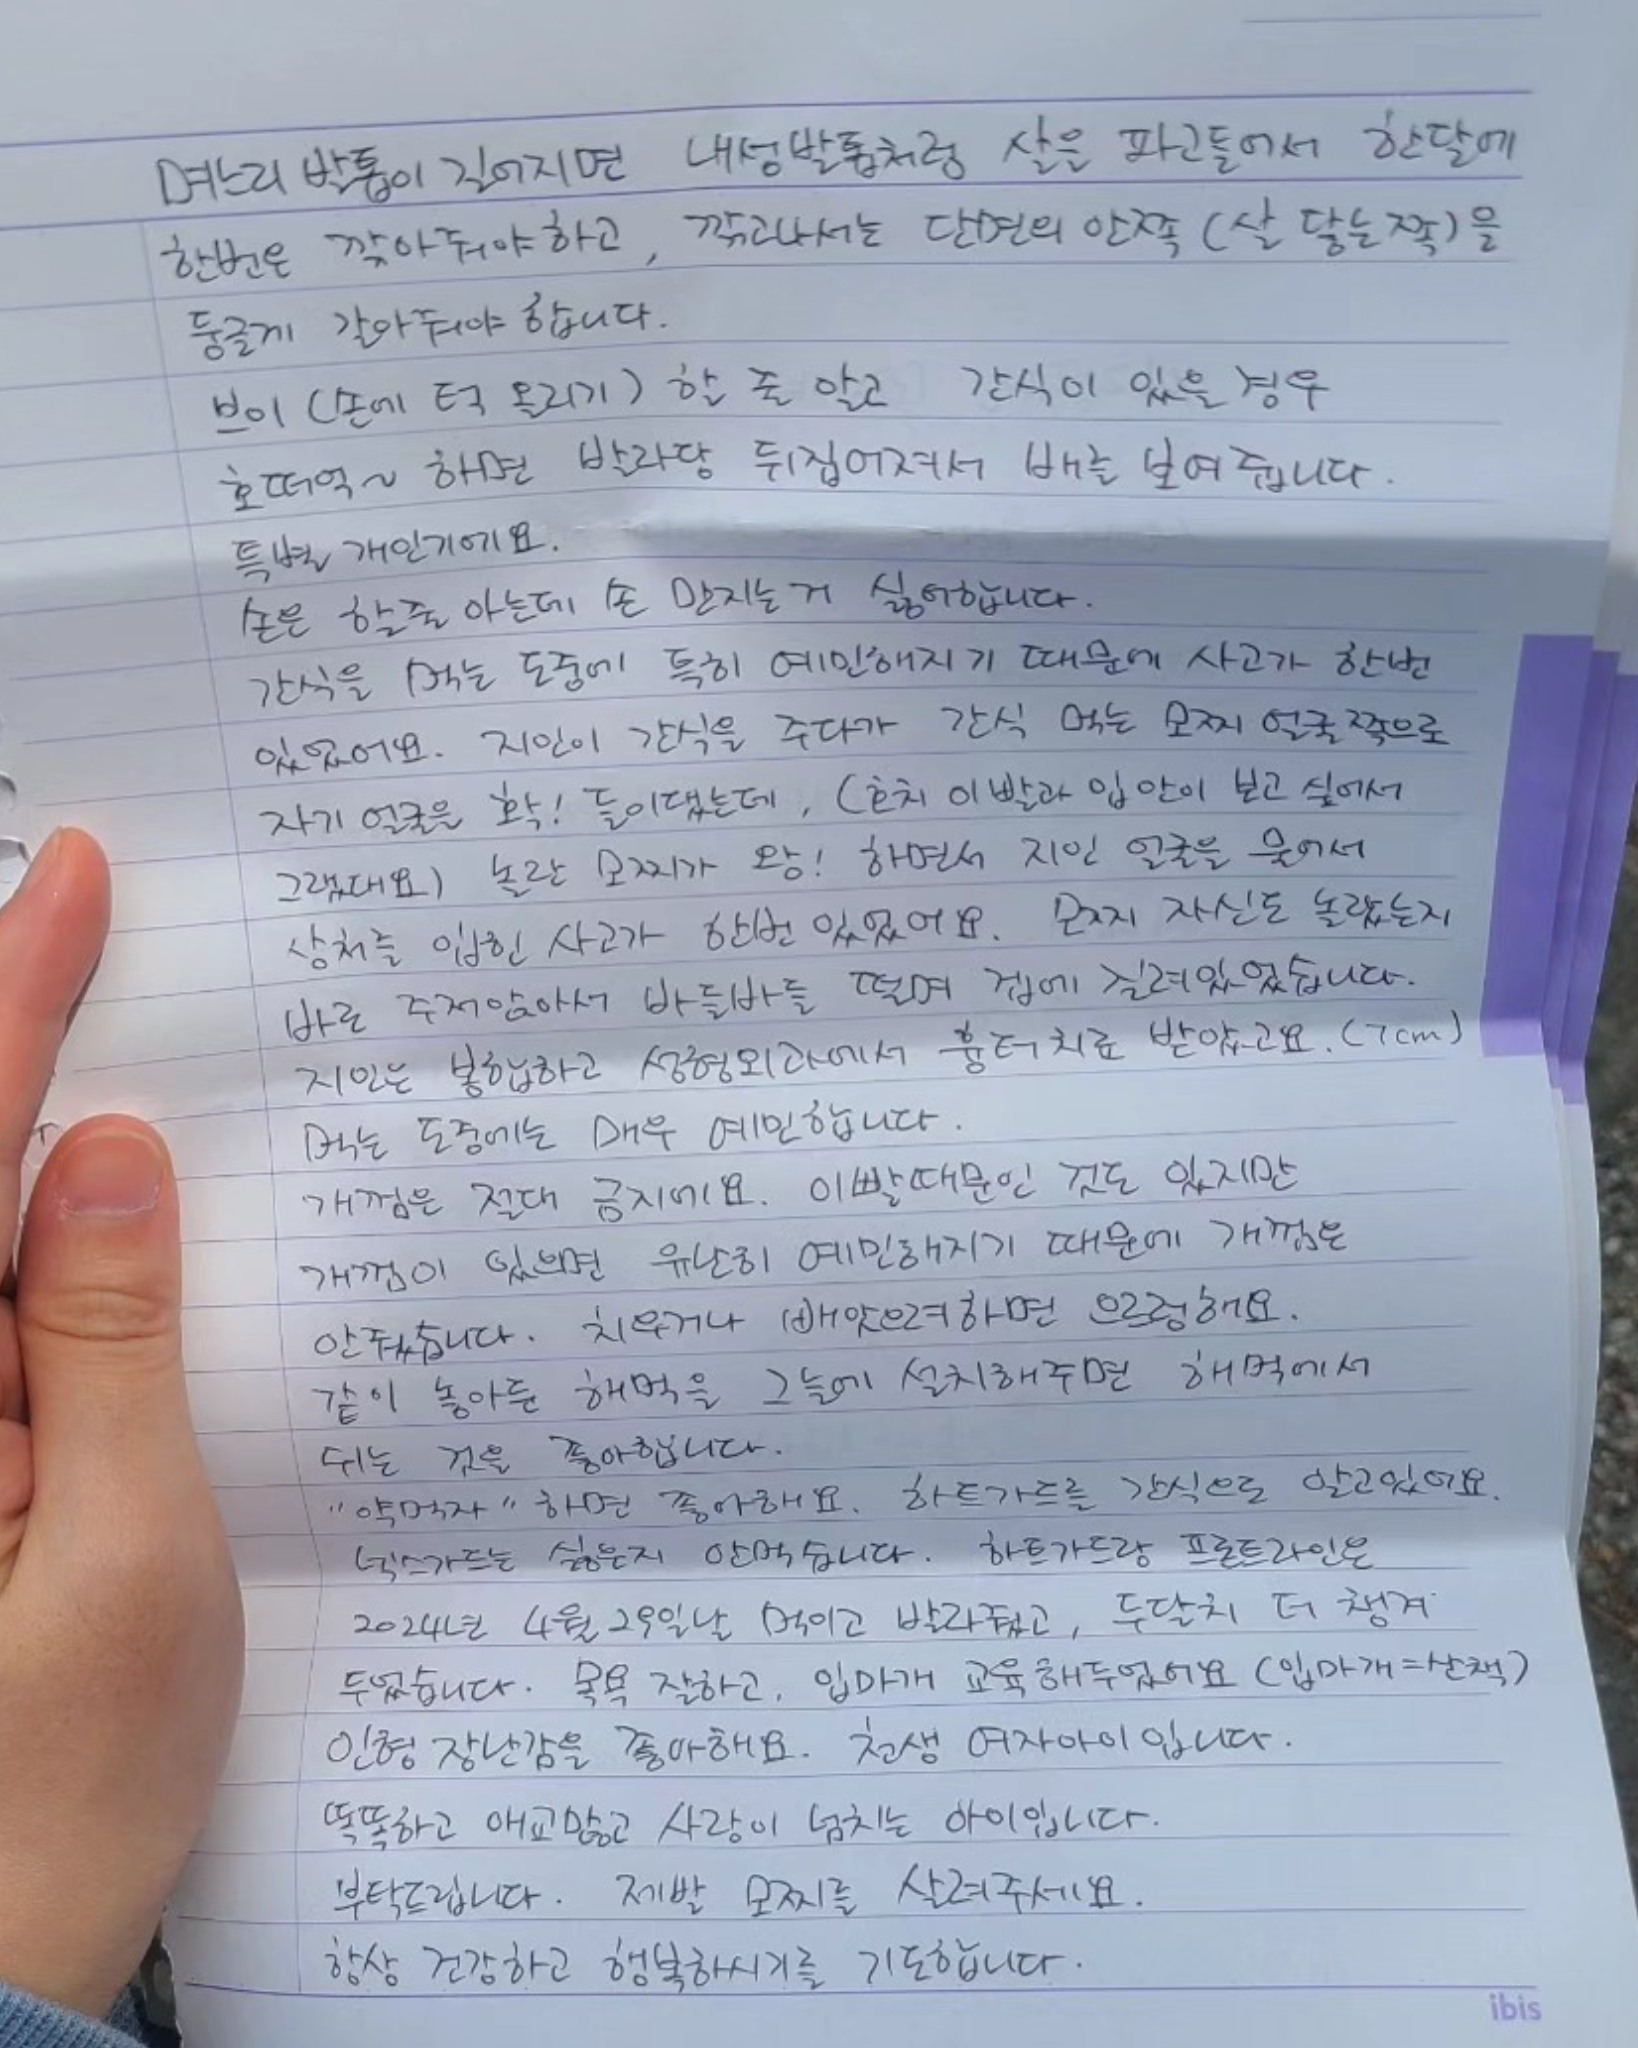 며느리 발톱이 길어지면 내성발톱처럼 살을 파고들어서 한달에
한번은 깎아줘야하고, 깎고나서는 단면의 안쪽(살 닿는쪽)을
둥글게 갈아줘야 합니다.
브이(손에 턱 올리기) 할 줄 알고 간식이 있을 경우
호떠억~ 하면 발라당 뒤집어져서 배를 보여줍니다.
특별 개인기에요.
손은 할줄 아는데 손 만지는거 싫어합니다.
간식을 먹는 도중에 특히 예민해지기 때문에 사고가 한번
있었어요. 지인이 간식을 주다가 간식 먹는 모찌 얼굴쪽으로
자기 얼굴을 확! 들이댔는데, (흔치 이빨과 입안이 보고싶어서
그랬대요) 놀란 모찌가 왕! 하면서 지인 얼굴을 물어서
상처를 입힌 사고가 한번 있었어요. 모찌 자신도 놀랐는지
바로 주저앉아서 바들바들 떨며 겁에 질려있었습니다.
지인은 봉합하고 성형외과에서 흉터치료 받았고요. (7cm)
먹는 도중에는 매우 예민합니다.
개껌은 절대 금지에요. 이빨때문인 것도 있지만
개껌이 있으면 유난히 예민해지기 때문에 개껌은
안줬습니다. 치우거나 빼앗으려하면 으르렁해요.
같이 놓아둔 해먹을 그늘에 설치해주면 해먹에서
쉬는 것을 좋아합니다.
"약먹자" 하면 좋아해요. 하트가드를 간식으로 알고있어요.
넥스가드는 싫은지 안먹습니다. 하트가드랑 프론트라인은
2024년 4월 29일날 먹이고 발라줬고, 두달치 더 챙겨
두었습니다. 목욕 잘하고, 입마개 교육해두었어요 (입마개=산책)
인형 장난감을 좋아해요. 천생 여자아이입니다.
똑똑하고 애교많고 사랑이 넘치는 아이입니다.
부탁드립니다. 제발 모찌를 살려주세요.
항상 건강하고 행복하시기를 기도합니다.
ibis